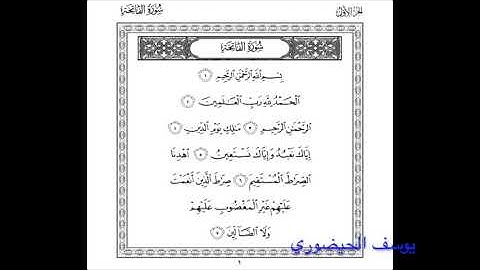 الجزء الأول
سورة الفاتحة
سورة الفاتحة
بسم الله الرحمن الرحيم ١
الحمد لله رب العالمين ٢
الرحمن الرحيم ٣ ملك يوم الدين ٤
إياك نعبد وإياك نستعين ٥ اهدنا
الصراط المستقيم ٦ صراط الذين أنعمت
عليهم غير المغضوب عليهم
ولا الضالين ٧
يوسف الحيضوري
١